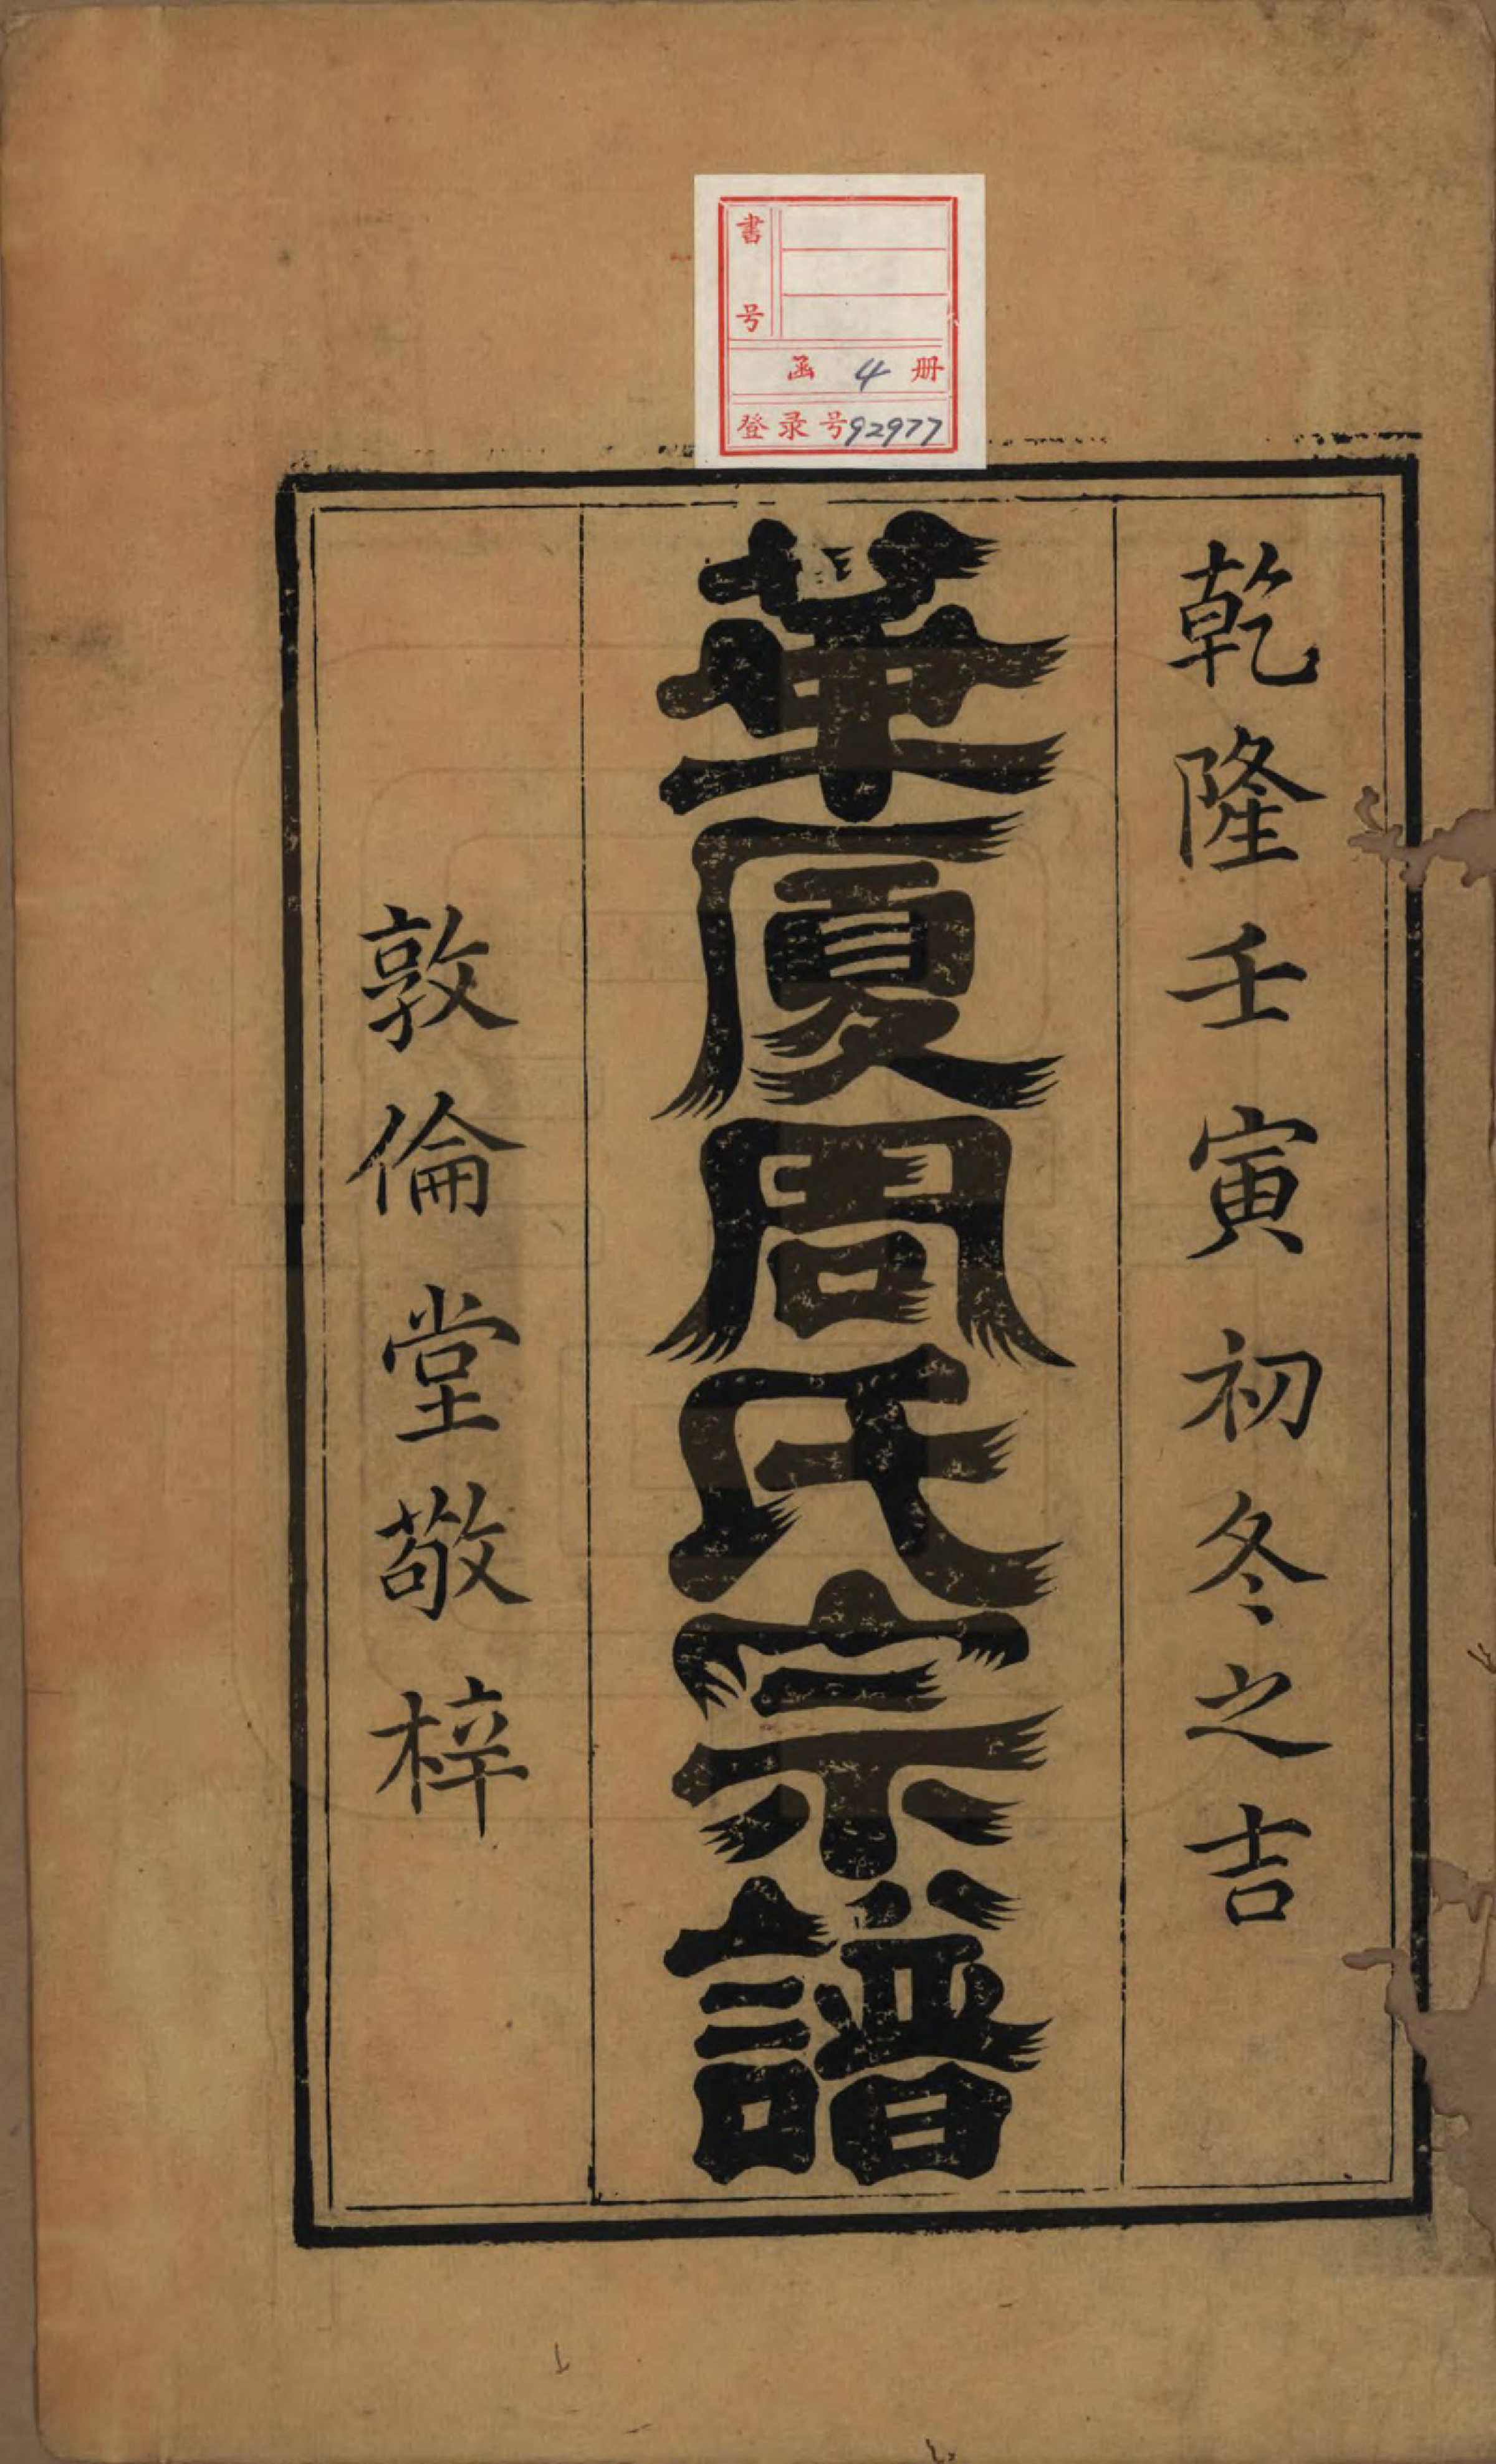 書号
函 4 册
登录号92977
乾隆壬寅初冬之吉
華廈周氏宗譜
敦倫堂敬梓